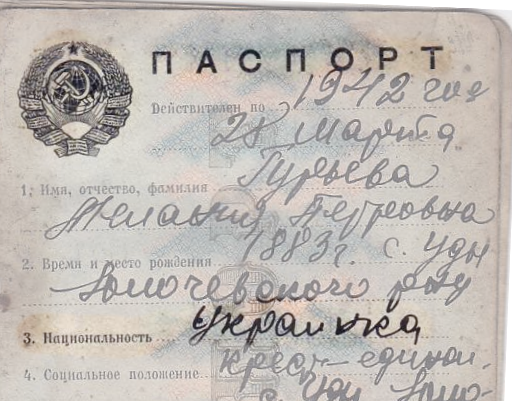 ПАСПОРТ
Действителен по 1942 год
28 Марта
Гурьева
1. Имя, отчество, фамилия
Мелания Петровна
1883 г. с. Уды
2. Время и место рождения
Золочевского р-ну
3. Национальность Украинка
крест-единол.
4. Социальное положение
с. Уди Золо-